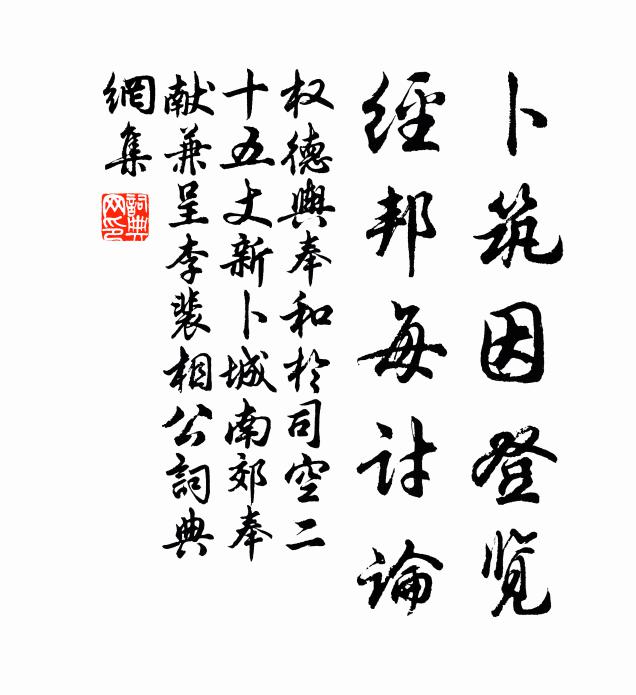 卜筑因登览
經邦每討論
权德輿奉和於司空二
十五丈新卜城南郊奉
献兼呈李裴相公詞典
網集
詞典
网印